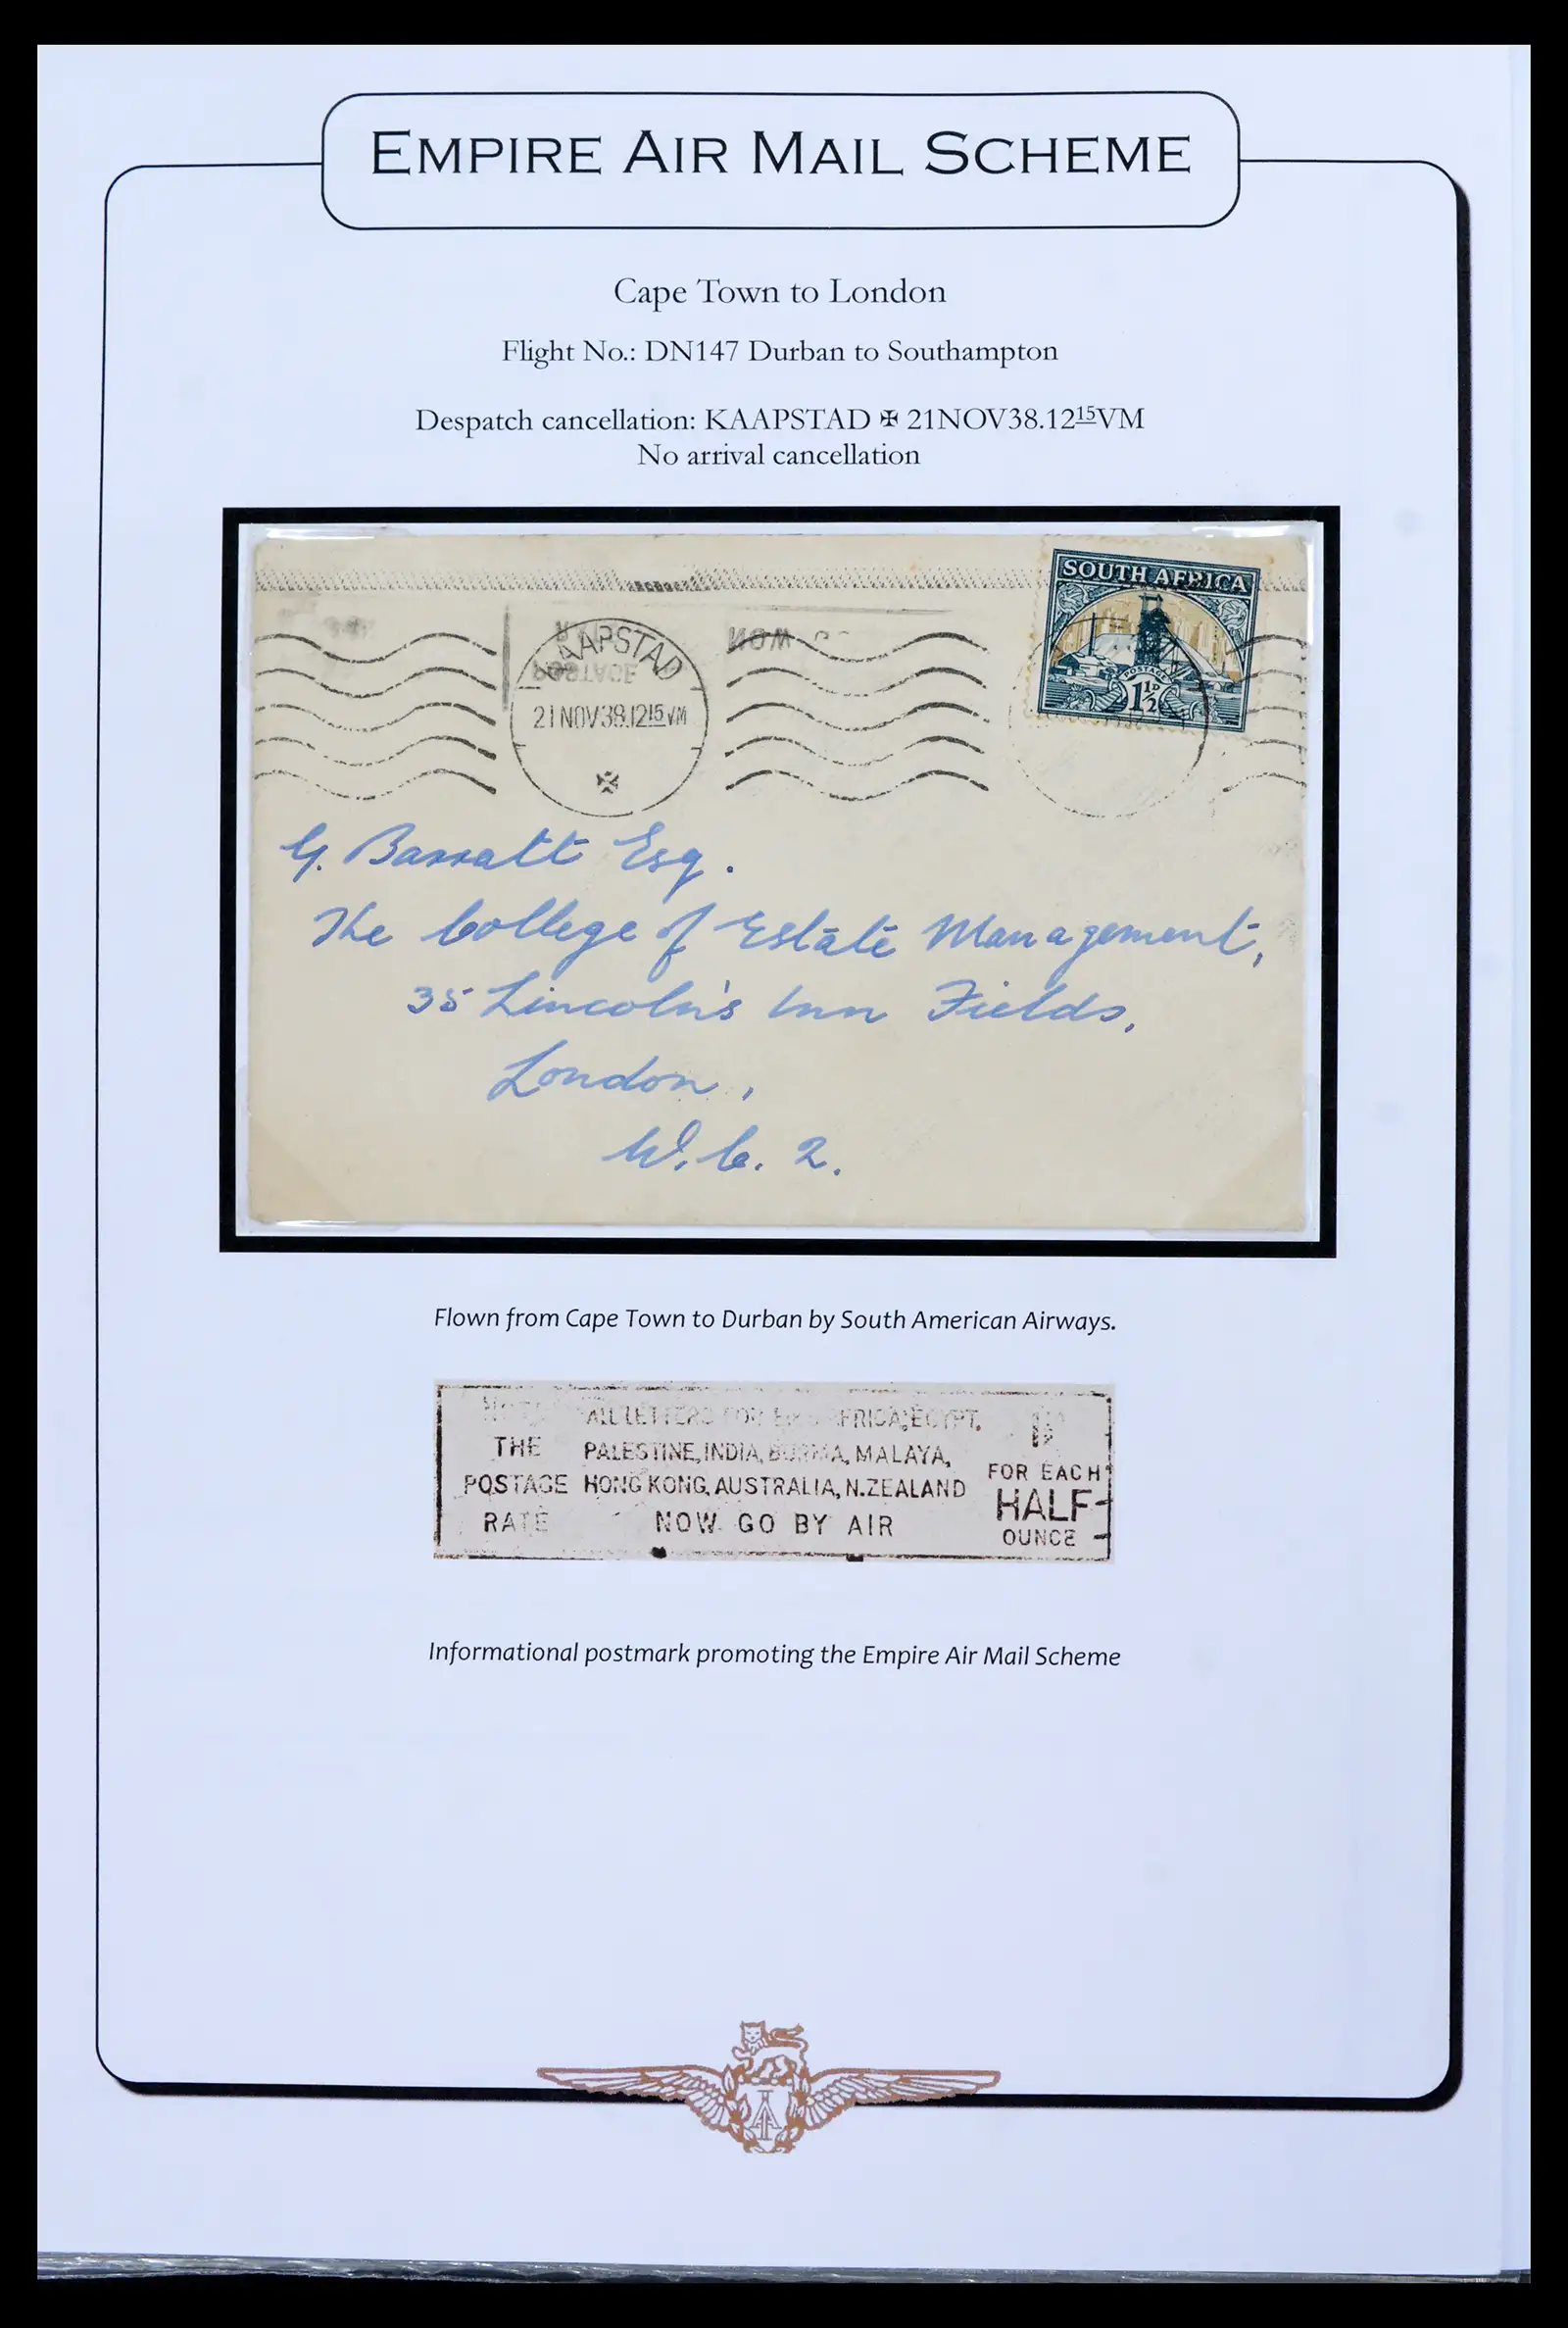 EMPIRE AIR MAIL SCHEME
Cape Town to London
Flight No.: DN147 Durban to Southampton
Despatch cancellation: KAAPSTAD ✠ 21NOV38.1215VM
No arrival cancellation
SOUTH AFRICA
POSTAGE
1½D
KAAPSTAD
21NOV38.1215VM
POSTAGE
NOW
G. Barratt Esq.
The College of Estate Management,
35 Lincoln's Inn Fields,
London,
W.C. 2.
Flown from Cape Town to Durban by South American Airways.
NOTE ALL LETTERS FOR AFRICA, EGYPT,
THE PALESTINE, INDIA, BURMA, MALAYA,
POSTAGE HONG KONG, AUSTRALIA, N.ZEALAND FOR EACH
RATE NOW GO BY AIR HALF
OUNCE
Informational postmark promoting the Empire Air Mail Scheme